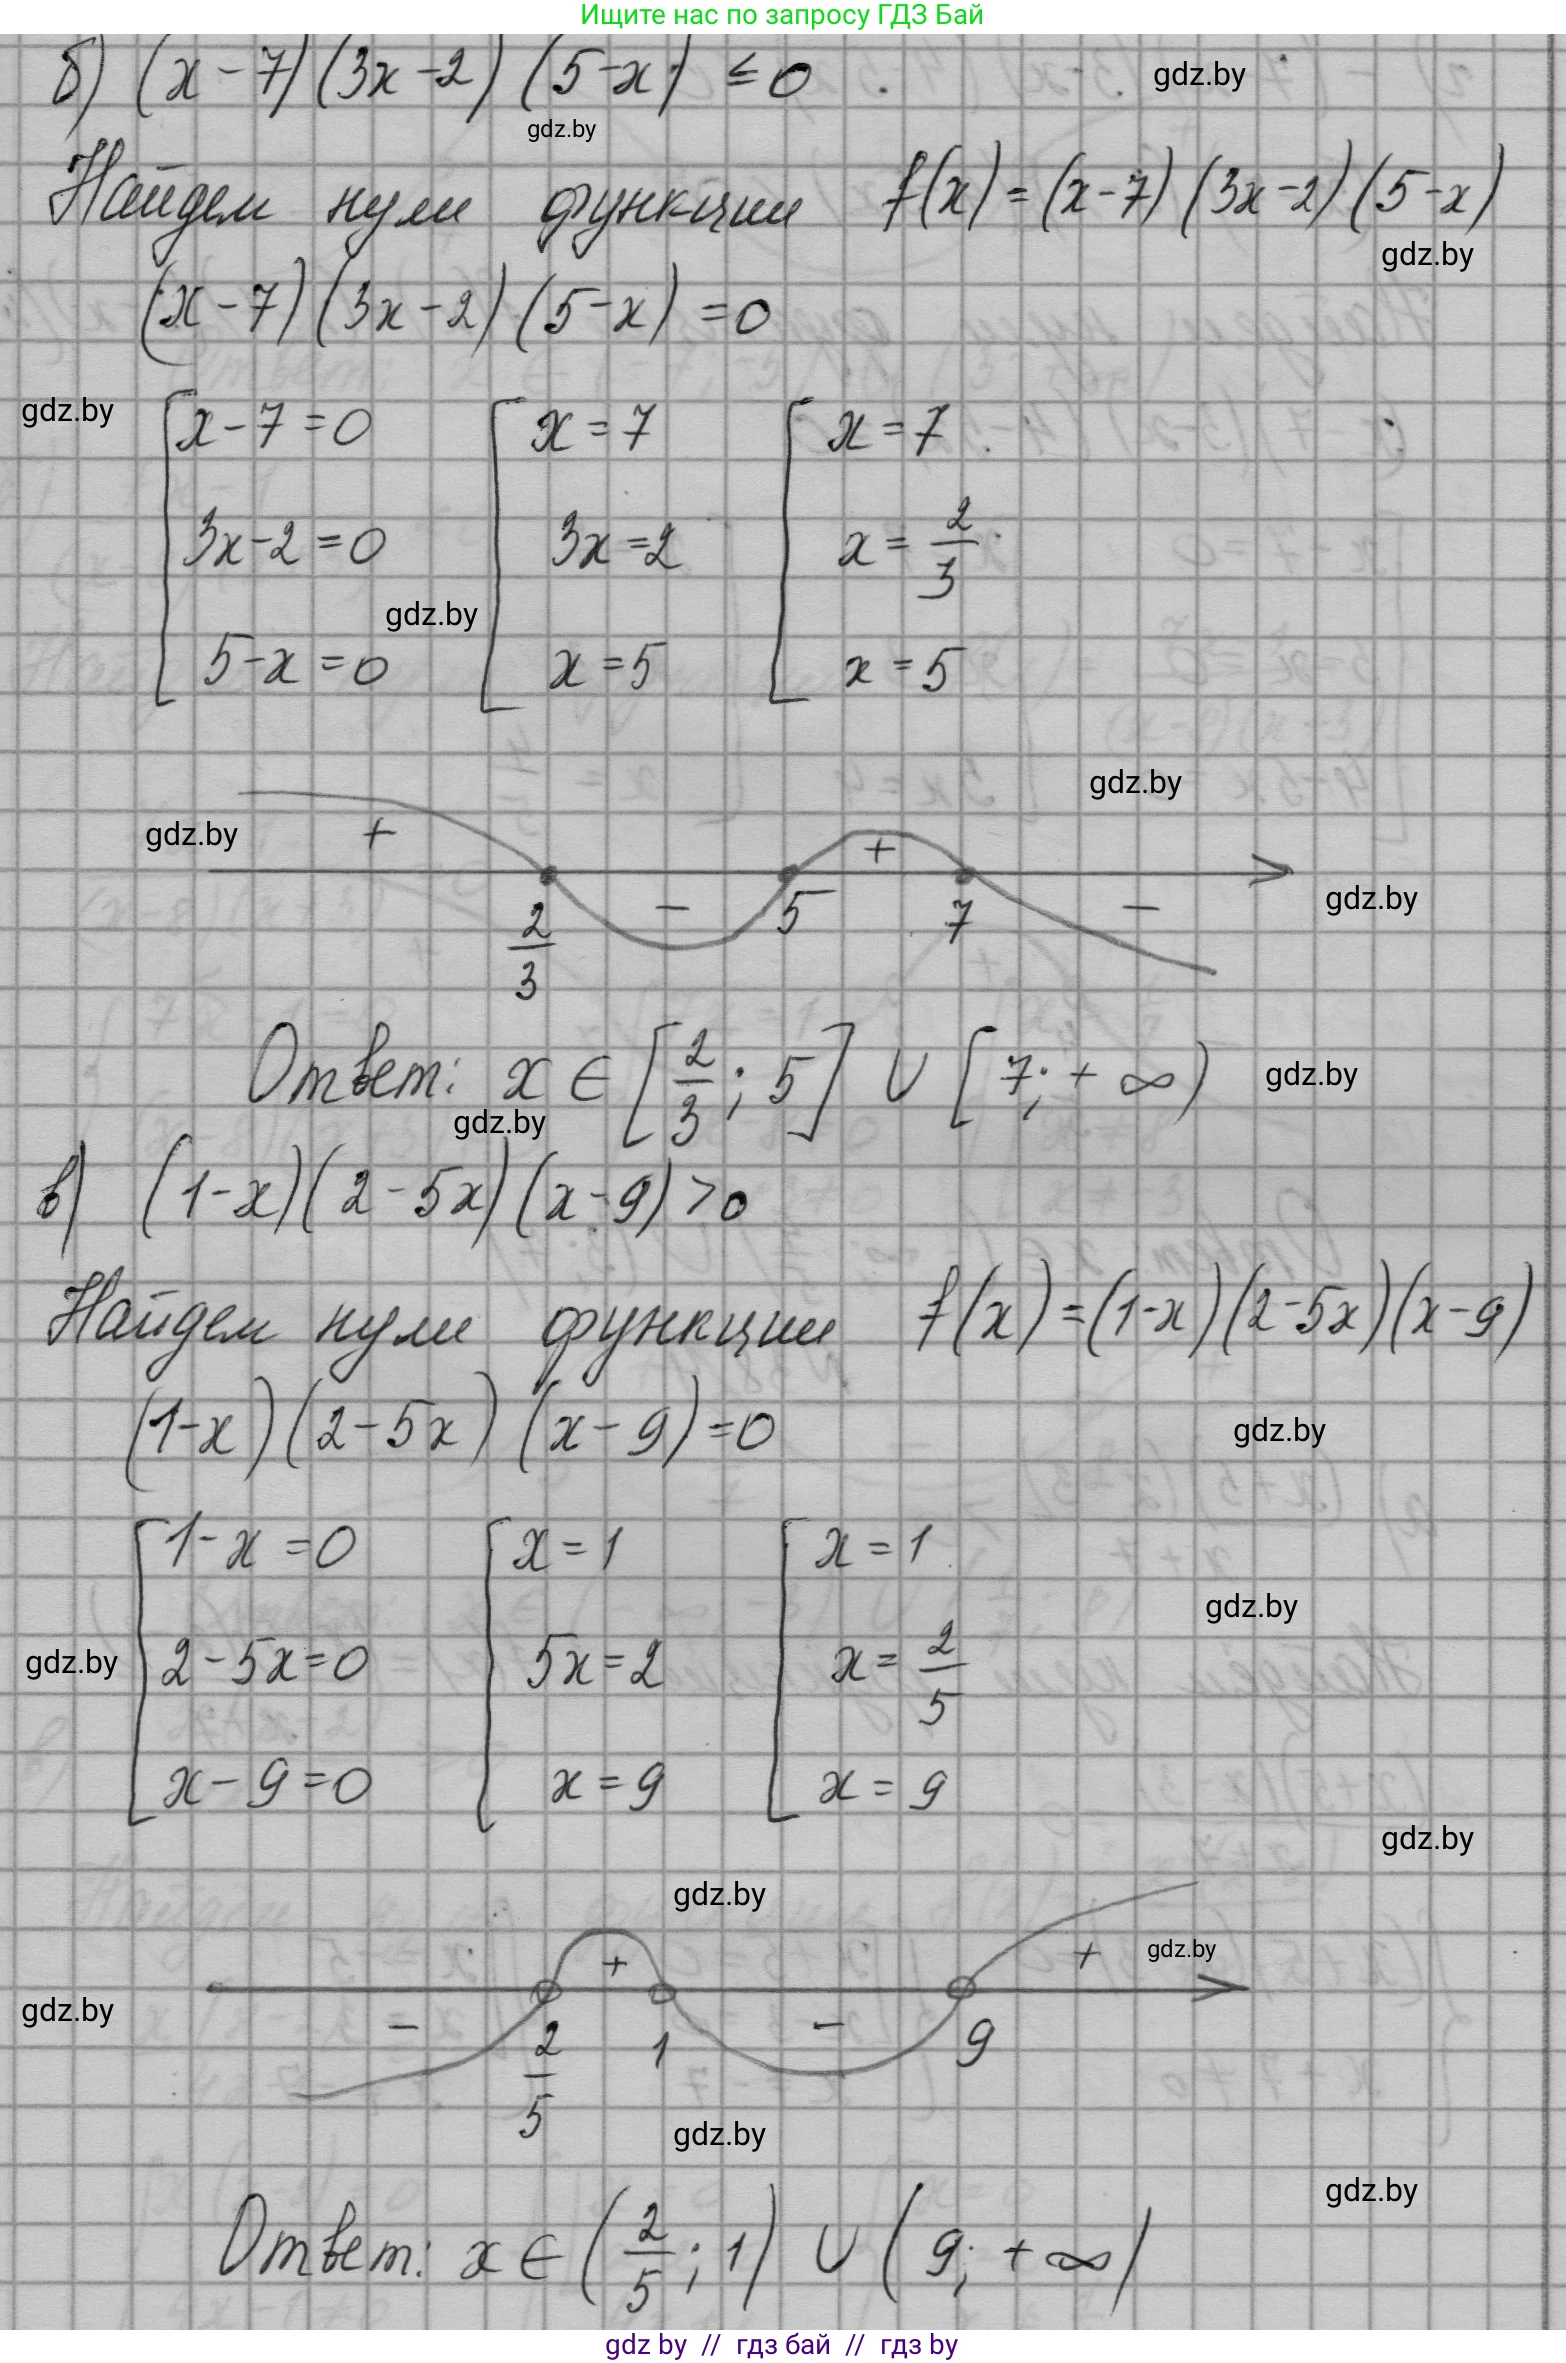 Ищите нас по запросу ГДЗ Бай
б) (x-7)(3x-2)(5-x) ≤ 0
gdz.by
gdz.by
Найдем нули функции f(x) = (x-7)(3x-2)(5-x)
gdz.by
(x-7)(3x-2)(5-x) = 0
gdz.by
[x-7=0 [x=7 [x=7
3x-2=0 3x=2 x=2/3
gdz.by
5-x=0 x=5 x=5
gdz.by
gdz.by
+ - + -
2/3 5 7
gdz.by
Ответ: x ∈ [2/3; 5] ∪ [7; +∞)
gdz.by
gdz.by
в) (1-x)(2-5x)(x-9) > 0
Найдем нули функции f(x) = (1-x)(2-5x)(x-9)
(1-x)(2-5x)(x-9) = 0
gdz.by
[1-x=0 [x=1 [x=1
gdz.by
gdz.by
2-5x=0 5x=2 x=2/5
x-9=0 x=9 x=9
gdz.by
gdz.by
- + - +
gdz.by
gdz.by
2/5 1 9
gdz.by
gdz.by
Ответ: x ∈ (2/5; 1) ∪ (9; +∞)
gdz by // гдз бай // гдз by